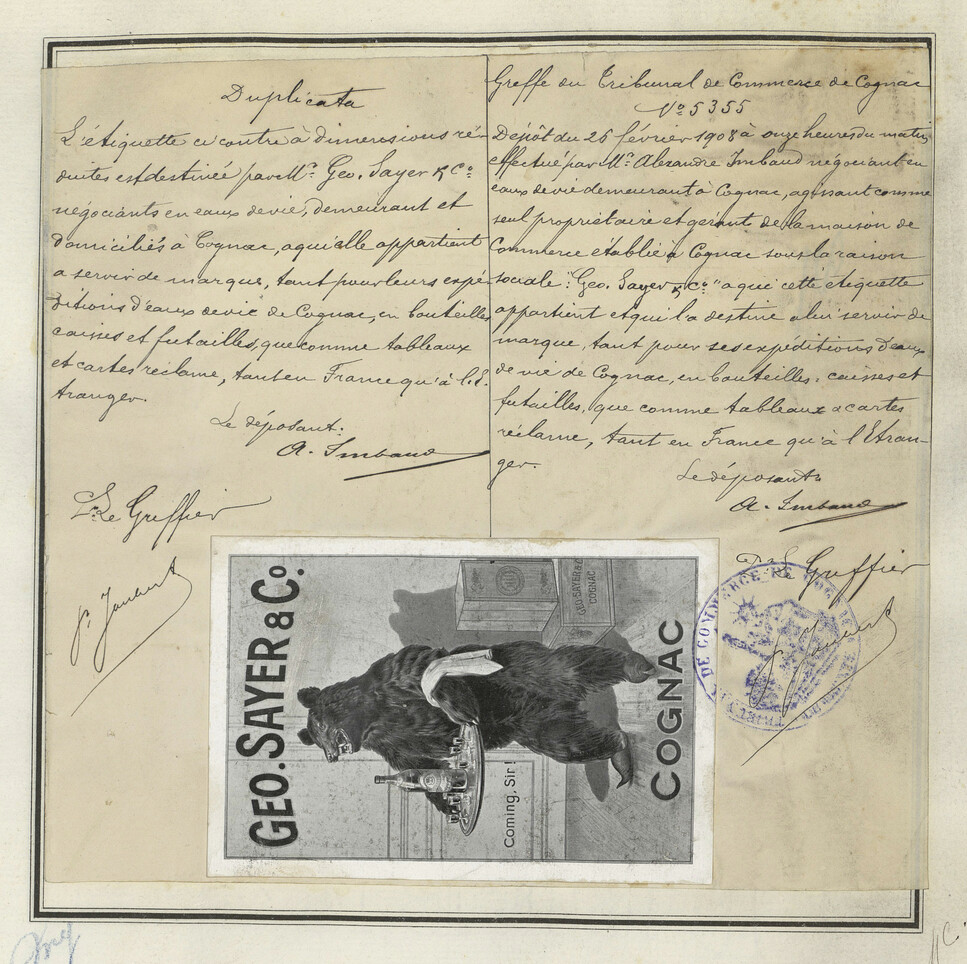 Duplicata
L'étiquette ci contre à dimensions ré-
duites est destinée par M.rs Geo. Sayer & Co
négociants en eaux de vie, demeurant et
domiciliés à Cognac, à qui elle appartient
a servir de marque, tant pour leurs expé-
ditions d'eaux de vie de Cognac, en bouteilles
caisses et futailles, que comme tableaux
et cartes réclame, tant en France qu'à l'é-
tranger.
Le déposant.
A. Imbaud
Le Greffier
Greffe du Tribunal de Commerce de Cognac
No 5355
Dépôt du 26 février 1908 à onze heures du matin
effectué par Mr. Alexandre Imbaud négociant en
eaux de vie demeurant à Cognac, agissant comme
seul propriétaire et gérant de la maison de
Commerce établie à Cognac sous la raison
sociale "Geo. Sayer & Co" a qui cette étiquette
appartient et qui l'a destine a lui servir de
marque, tant pour ses expéditions d'eaux
de vie de Cognac, en bouteilles, caisses et
futailles, que comme tableaux & cartes
réclame, tant en France qu'à l'Etran-
ger.
Le déposant
A. Imbaud
Le Greffier
GEO. SAYER & Co.
GEO. SAYER & Co
COGNAC
Coming, Sir!
COGNAC
DE COMMERCE DE